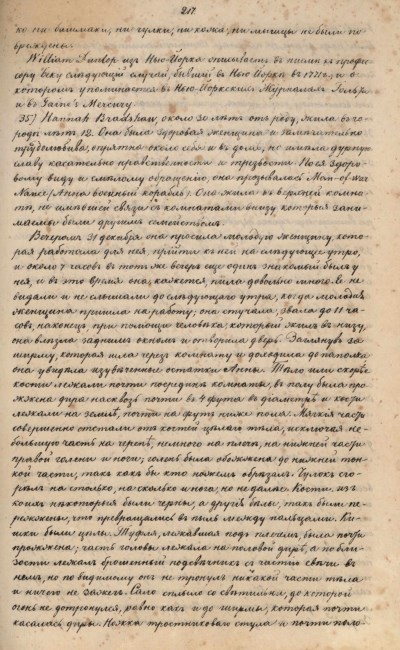 217
ко ни башмаки, ни чулки, ни кожа, ни мышцы не были по-
вреждены.
William Dunlop изъ Нью-Йорка описываетъ въ письмѣ къ профес-
сору Беку слѣдующій случай, бывшій въ Нью-Йоркѣ въ 1771 г. и о
которомъ упоминается въ Нью-Йоркскихъ Журналахъ
и въ Gaine's Mercury.
35) Hannah Bradshaw, около 30 лѣтъ отъ роду, жила въ го-
родѣ лѣтъ 12. Она была здоровая женщина и замѣчательно
трудолюбива, опрятна около себя и въ домѣ, но имѣла дурную
славу касательно нравственности и трезвости. По ея здоро-
вому виду и смѣлому обращенію, она прозывалась Man-of-War
Nance (Анна военный корабль). Она жила въ верхней комна-
тѣ, не имѣвшей связи съ комнатами внизу, которыя зани-
маемы были другимъ семействомъ.
Вечеромъ 31 декабря она просила молодую женщину, кото-
рая работала для нея, прійти къ ней на слѣдующее утро,
и около 7 часовъ въ тотъ же вечеръ еще одинъ знакомый былъ у
нея, и въ это время она, кажется, пила довольно много. Ее не
видали и не слышали до слѣдующаго утра, когда молодая
женщина пришла на работу; она стучала, звала до 11 ча-
совъ, наконецъ при помощи человѣка, который жилъ въ низу,
она влѣзла заднимъ окномъ и отворила дверь. Заглянувъ за
ширму, которая шла черезъ комнату и доходила до потолка
она увидѣла изувѣченные остатки Анны. Тѣло или скорѣе
кости лежали почти посрединѣ комнаты, въ полу была про-
жжена дыра насквозь почти въ 4 фута въ діаметрѣ и кости
лежали на землѣ, почти на футъ ниже пола. Мягкія части
совершенно отстали отъ костей цѣлаго тѣла, исключая не-
большую часть на черепѣ, немного на плечѣ, на нижней части
правой голени и ноги; голень была обожжена до нижней тон-
кой части, такъ какъ бы кто ножемъ обрѣзалъ. Чулокъ сго-
рѣлъ на столько, на сколько и нога, но не далѣе. Кости, изъ
коихъ нѣкоторыя были черны, а другія бѣлы, такъ были пе-
режжены, что превращались въ пыль между пальцами. Ки-
шки были цѣлы. Туфля, лежавшая подъ плечемъ, была почти
прожжена; часть головы лежала на половой дырѣ, а по бли-
зости лежалъ брошенный подсвѣчникъ съ частью свѣчи въ
немъ, но по видимому онъ не тронулъ никакой части тѣла
и ничего не зажегъ. Сало сплыло со свѣтильна, до которой
огонь не дотронулся, равно какъ и до ширмы, которая почти
касалась дыры. Ножка тростниковаго стула и почти поло-